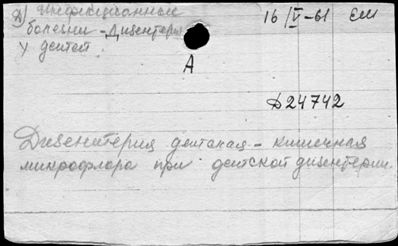 2) Инфекционные
болезни - Дизентерия
у детей.
16/V-61 ЕМ
А
Д24742
Дизентерия детская - кишечная
микрофлора при детской дизентерии.